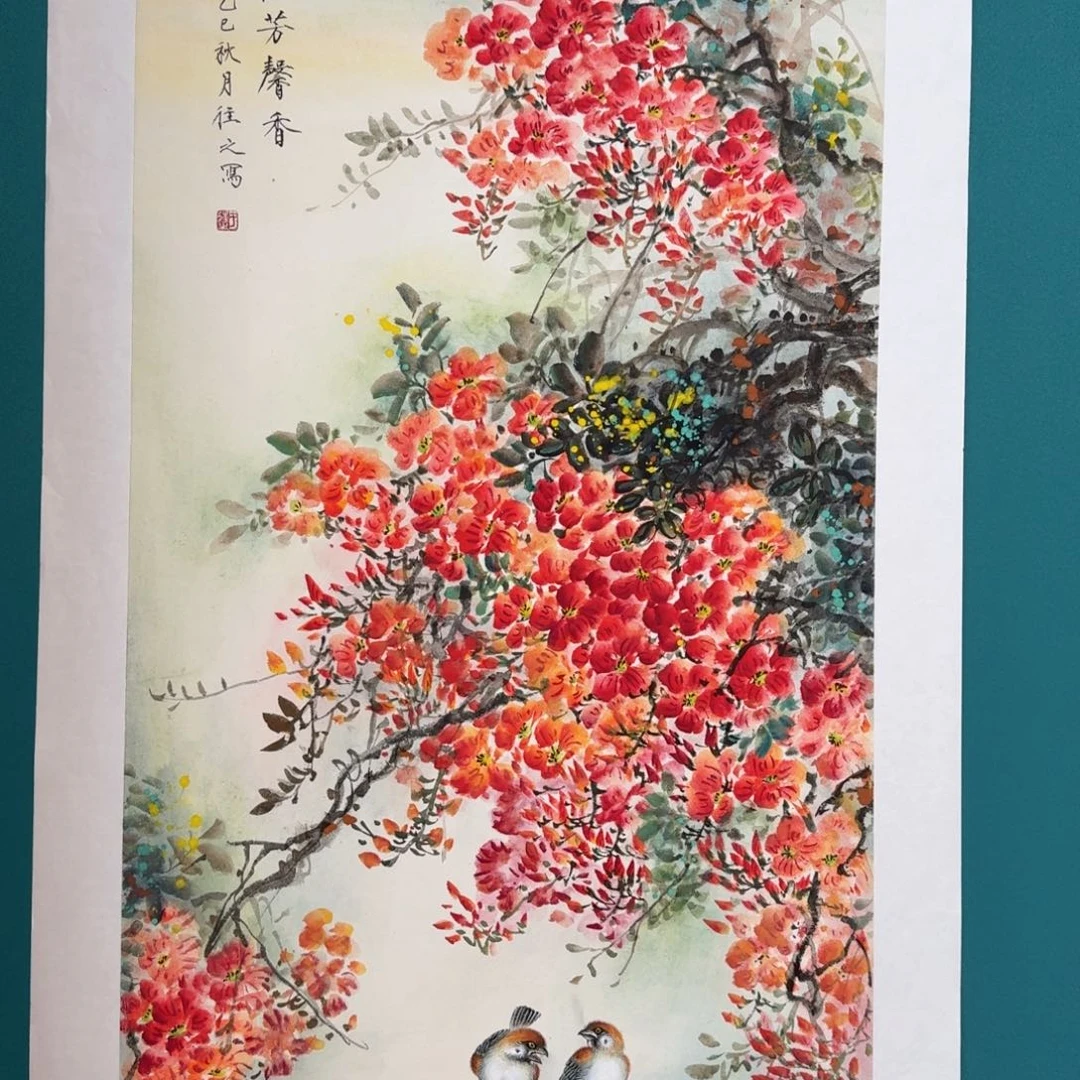 芳馨香
乙巳秋月往之寫